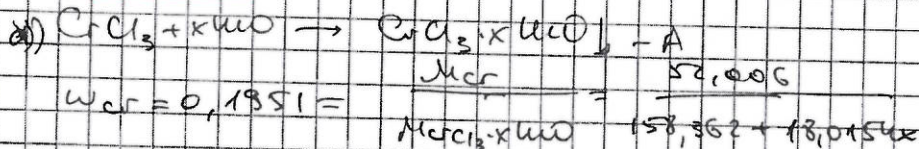 a)) CrCl₃ + xH₂O → CrCl₃·xH₂O↓ - A
Wcr = 0,1951 = Mcr / MCrCl₃·xH₂O = 52,006 / 158,362 + 18,0154x